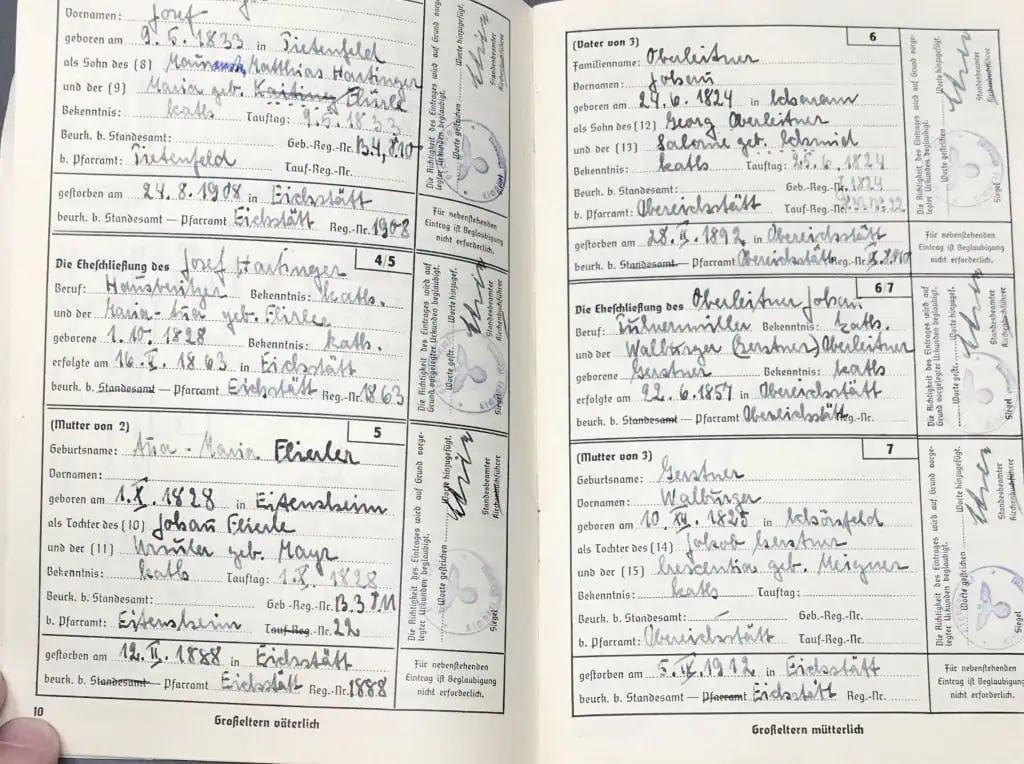 Vornamen: Josef
geboren am 9.5.1833 in Pietenfeld
als Sohn des (8) Matthias Hartinger
und der (9) Maria geb.
Bekenntnis: kath. Tauftag: 9.5.1833
Beurk. b. Standesamt: Geb.-Reg.-Nr.
b. Pfarramt: Pietenfeld Tauf-Reg.-Nr.
gestorben am 24.8.1908 in Eichstätt
beurk. b. Standesamt — Pfarramt Eichstätt Reg.-Nr. 1908
Die Richtigkeit des Eintrages wird auf Grund vorge-
legter Urkunden beglaubigt.
Worte gestrichen Worte hinzugefügt.
Standesbeamter
Kirchenbuchführer
Siegel
Für nebenstehenden
Eintrag ist Beglaubigung
nicht erforderlich.
4/5
Die Eheschließung des Josef Hartinger
Beruf: Hausbesitzer Bekenntnis: kath.
und der Maria-Ana geb. Flierle
geborene 1.10.1828 Bekenntnis: kath.
erfolgte am 16.X.1863 in Eichstätt
beurk. b. Standesamt — Pfarramt Eichstätt Reg.-Nr. 1863
Die Richtigkeit des Eintrages wird auf
Grund vorgelegter Urkunden beglaubigt.
Worte gestr. Worte hinzugef.
Standesbeamter
Kirchenbuchführer
Siegel
(Mutter von 2) 5
Geburtsname: Ana-Maria Flierler
Vornamen:
geboren am 1.X.1828 in Eitensheim
als Tochter des (10) Johan Flierle
und der (11) Ursula geb. Mayr
Bekenntnis: kath Tauftag: 1.X.1828
Beurk. b. Standesamt: Geb.-Reg.-Nr. B.3
b. Pfarramt: Eitensheim Tauf-Reg.-Nr. 22
gestorben am 12.II.1888 in Eichstätt
beurk. b. Standesamt — Pfarramt Eichstätt Reg.-Nr. 1888
Die Richtigkeit des Eintrages wird auf Grund vorge-
legter Urkunden beglaubigt.
Worte gestrichen Worte hinzugefügt.
Standesbeamter
Kirchenbuchführer
Siegel
Für nebenstehenden
Eintrag ist Beglaubigung
nicht erforderlich.
10
Großeltern väterlich
(Vater von 3) 6
Familienname: Oberleitner
Vornamen: Johan
geboren am 24.6.1824 in
als Sohn des (12) Georg Oberleitner
und der (13) Salome geb. Schmid
Bekenntnis: kath Tauftag: 25.6.1824
Beurk. b. Standesamt: Geb.-Reg.-Nr. 1824
b. Pfarramt: Obereichstätt Tauf-Reg.-Nr.
gestorben am 28.II.1892 in Obereichstätt
beurk. b. Standesamt — Pfarramt Obereichstätt Reg.-Nr.
Die Richtigkeit des Eintrages wird auf Grund vorge-
legter Urkunden beglaubigt.
Worte gestrichen Worte hinzugefügt.
Standesbeamter
Kirchenbuchführer
Siegel
Für nebenstehenden
Eintrag ist Beglaubigung
nicht erforderlich.
6/7
Die Eheschließung des Oberleitner Johan
Beruf: Bekenntnis: kath.
und der Walburger (Gerstner) Oberleitner
geborene Gerstner Bekenntnis: kath
erfolgte am 22.6.1857 in Obereichstätt
beurk. b. Standesamt — Pfarramt Obereichstätt Reg.-Nr.
Die Richtigkeit des Eintrages wird auf
Grund vorgelegter Urkunden beglaubigt.
Worte gestr. Worte hinzugef.
Standesbeamter
Kirchenbuchführer
Siegel
(Mutter von 3) 7
Geburtsname: Gerstner
Vornamen: Walburger
geboren am 10.XII.1825 in
als Tochter des (14) Jakob Gerstner
und der (15) Crescentia geb. Meigner
Bekenntnis: kath Tauftag:
Beurk. b. Standesamt: — Geb.-Reg.-Nr.
b. Pfarramt: Obereichstätt Tauf-Reg.-Nr.
gestorben am 5.IX.1912 in Eichstätt
beurk. b. Standesamt — Pfarramt Eichstätt Reg.-Nr.
Die Richtigkeit des Eintrages wird auf Grund vorge-
legter Urkunden beglaubigt.
Worte gestrichen Worte hinzugefügt.
Standesbeamter
Kirchenbuchführer
Siegel
Für nebenstehenden
Eintrag ist Beglaubigung
nicht erforderlich.
Großeltern mütterlich